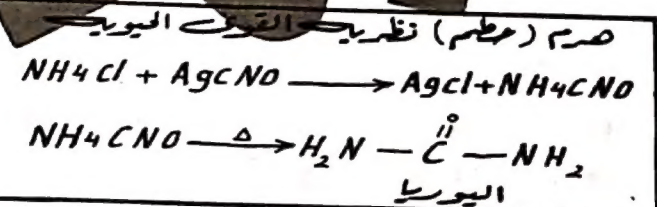 هدم (حطم) نظرية القوى الحيوية
NH4Cl + AgCNO ⟶ AgCl + NH4CNO
O
NH4CNO —Δ→ H2N — C — NH2
اليوريا